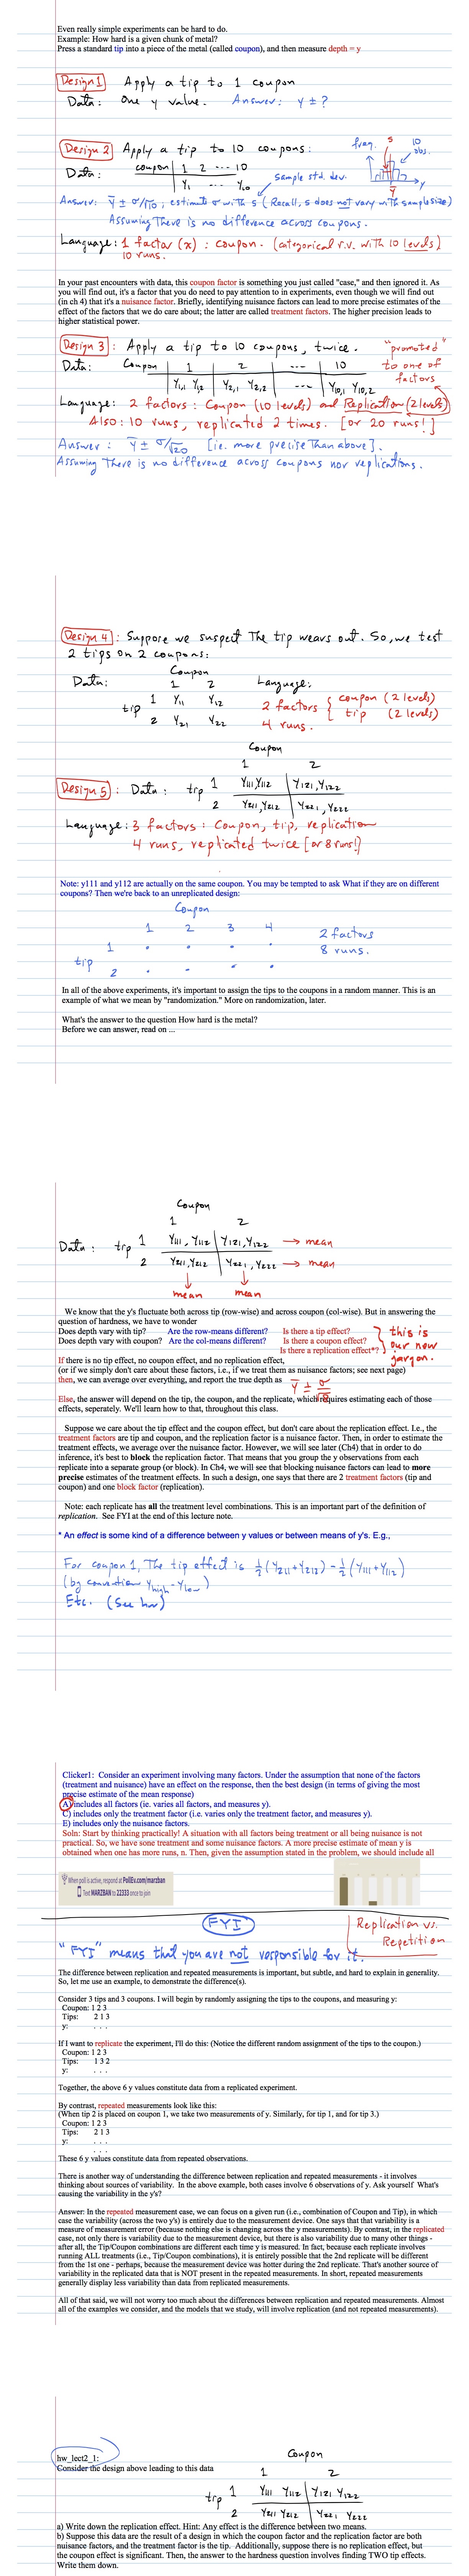 Even really simple experiments can be hard to do.
Example: How hard is a given chunk of metal?
Press a standard tip into a piece of the metal (called coupon), and then measure depth = y
Design 1 Apply a tip to 1 coupon
Data: One y value. Answer: y ± ?
Design 2 Apply a tip to 10 coupons:
freq. s 10 obs.
ȳ y
Data: coupon 1 2 ... 10
y₁ ... y₁₀
sample std. dev.
Answer: ȳ ± σ/√10, estimate σ with s (Recall, s does not vary with sample size)
Assuming There is no difference across coupons.
Language: 1 factor (x): coupon. (categorical r.v. with 10 levels)
10 runs.
In your past encounters with data, this coupon factor is something you just called "case," and then ignored it. As
you will find out, it's a factor that you do need to pay attention to in experiments, even though we will find out
(in ch 4) that it's a nuisance factor. Briefly, identifying nuisance factors can lead to more precise estimates of the
effect of the factors that we do care about; the latter are called treatment factors. The higher precision leads to
higher statistical power.
Design 3: Apply a tip to 10 coupons, twice.
"promoted" to one of factors
Data: Coupon 1 2 ... 10
y₁,₁ y₁,₂ y₂,₁ y₂,₂ ... y₁₀,₁ y₁₀,₂
Language: 2 factors: Coupon (10 levels) and Replication (2 levels)
Also: 10 runs, replicated 2 times. [or 20 runs!]
Answer: ȳ ± σ/√20 [ie. more precise Than above].
Assuming There is no difference across coupons nor replications.
Design 4: Suppose we suspect The tip wears out. So, we test
2 tips on 2 coupons:
Coupon
Data: 1 2 Language:
tip 1 y₁₁ y₁₂ 2 factors { coupon (2 levels)
2 y₂₁ y₂₂ tip (2 levels)
4 runs.
Coupon
1 2
Design 5: Data: tip 1 y₁₁₁, y₁₁₂ y₁₂₁, y₁₂₂
2 y₂₁₁, y₂₁₂ y₂₂₁, y₂₂₂
Language: 3 factors: Coupon, tip, replication
4 runs, replicated twice [or 8 runs!]
Note: y111 and y112 are actually on the same coupon. You may be tempted to ask What if they are on different
coupons? Then we're back to an unreplicated design:
Coupon
1 2 3 4 2 factors
tip 1 . . . . 8 runs.
2 . . . .
In all of the above experiments, it's important to assign the tips to the coupons in a random manner. This is an
example of what we mean by "randomization." More on randomization, later.
What's the answer to the question How hard is the metal?
Before we can answer, read on ...
Coupon
1 2
Data: tip 1 y₁₁₁, y₁₁₂ y₁₂₁, y₁₂₂ → mean
2 y₂₁₁, y₂₁₂ y₂₂₁, y₂₂₂ → mean
↓ ↓
mean mean
We know that the y's fluctuate both across tip (row-wise) and across coupon (col-wise). But in answering the
question of hardness, we have to wonder
Does depth vary with tip? Are the row-means different? Is there a tip effect?
Does depth vary with coupon? Are the col-means different? Is there a coupon effect?
Is there a replication effect*?
} this is our new jargon.
If there is no tip effect, no coupon effect, and no replication effect,
(or if we simply don't care about these factors, i.e., if we treat them as nuisance factors; see next page)
then, we can average over everything, and report the true depth as ȳ ± σ/√8
Else, the answer will depend on the tip, the coupon, and the replicate, which requires estimating each of those
effects, seperately. We'll learn how to do that, throughout this class.
Suppose we care about the tip effect and the coupon effect, but don't care about the replication effect. I.e., the
treatment factors are tip and coupon, and the replication factor is a nuisance factor. Then, in order to estimate the
treatment effects, we average over the nuisance factor. However, we will see later (Ch4) that in order to do
inference, it's best to block the replication factor. That means that you group the y observations from each
replicate into a separate group (or block). In Ch4, we will see that blocking nuisance factors can lead to more
precise estimates of the treatment effects. In such a design, one says that there are 2 treatment factors (tip and
coupon) and one block factor (replication).
Note: each replicate has all the treatment level combinations. This is an important part of the definition of
replication. See FYI at the end of this lecture note.
* An effect is some kind of a difference between y values or between means of y's. E.g.,
For coupon 1, The tip effect is ½(y₂₁₁+y₂₁₂) - ½(y₁₁₁+y₁₁₂)
(by convention y_high - y_low)
Etc. (See hw)
Clicker1: Consider an experiment involving many factors. Under the assumption that none of the factors
(treatment and nuisance) have an effect on the response, then the best design (in terms of giving the most
precise estimate of the mean response)
A) includes all factors (ie. varies all factors, and measures y).
C) includes only the treatment factor (i.e. varies only the treatment factor, and measures y).
E) includes only the nuisance factors.
Soln: Start by thinking practically! A situation with all factors being treatment or all being nuisance is not
practical. So, we have some treatment and some nuisance factors. A more precise estimate of mean y is
obtained when one has more runs, n. Then, given the assumption stated in the problem, we should include all
When poll is active, respond at PollEv.com/marzban
Text MARZBAN to 22333 once to join
FYI
Replication vs. Repetition
"FYI" means that you are not responsible for it.
The difference between replication and repeated measurements is important, but subtle, and hard to explain in generality.
So, let me use an example, to demonstrate the difference(s).
Consider 3 tips and 3 coupons. I will begin by randomly assigning the tips to the coupons, and measuring y:
Coupon: 1 2 3
Tips: 2 1 3
y: . . .
If I want to replicate the experiment, I'll do this: (Notice the different random assignment of the tips to the coupon.)
Coupon: 1 2 3
Tips: 1 3 2
y: . . .
Together, the above 6 y values constitute data from a replicated experiment.
By contrast, repeated measurements look like this:
(When tip 2 is placed on coupon 1, we take two measurements of y. Similarly, for tip 1, and for tip 3.)
Coupon: 1 2 3
Tips: 2 1 3
y: . . .
. . .
These 6 y values constitute data from repeated observations.
There is another way of understanding the difference between replication and repeated measurements - it involves
thinking about sources of variability. In the above example, both cases involve 6 observations of y. Ask yourself What's
causing the variability in the y's?
Answer: In the repeated measurement case, we can focus on a given run (i.e., combination of Coupon and Tip), in which
case the variability (across the two y's) is entirely due to the measurement device. One says that that variability is a
measure of measurement error (because nothing else is changing across the y measurements). By contrast, in the replicated
case, not only there is variability due to the measurement device, but there is also variability due to many other things -
after all, the Tip/Coupon combinations are different each time y is measured. In fact, because each replicate involves
running ALL treatments (i.e., Tip/Coupon combinations), it is entirely possible that the 2nd replicate will be different
from the 1st one - perhaps, because the measurement device was hotter during the 2nd replicate. That's another source of
variability in the replicated data that is NOT present in the repeated measurements. In short, repeated measurements
generally display less variability than data from replicated measurements.
All of that said, we will not worry too much about the differences between replication and repeated measurements. Almost
all of the examples we consider, and the models that we study, will involve replication (and not repeated measurements).
hw_lect2_1:
Consider the design above leading to this data
Coupon
1 2
tip 1 y₁₁₁ y₁₁₂ y₁₂₁ y₁₂₂
2 y₂₁₁ y₂₁₂ y₂₂₁ y₂₂₂
a) Write down the replication effect. Hint: Any effect is the difference between two means.
b) Suppose this data are the result of a design in which the coupon factor and the replication factor are both
nuisance factors, and the treatment factor is the tip. Additionally, suppose there is no replication effect, but
the coupon effect is significant. Then, the answer to the hardness question involves finding TWO tip effects.
Write them down.